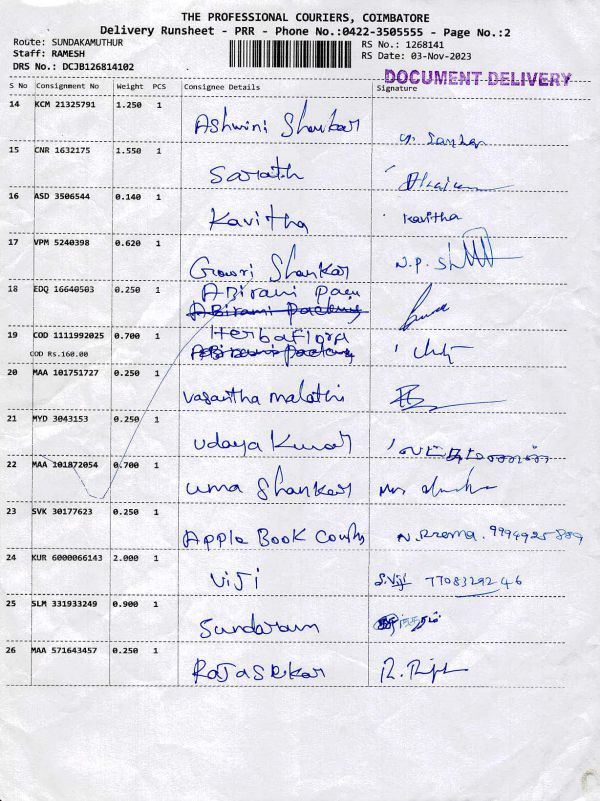 THE PROFESSIONAL COURIERS, COIMBATORE
Delivery Runsheet - PRR - Phone No.:0422-3505555 - Page No.:2
Route: SUNDAKAMUTHUR
RS No.: 1268141
Staff: RAMESH
RS Date: 03-Nov-2023
DRS No.: DCJB126814102
DOCUMENT DELIVERY
S No Consignment No Weight PCS Consignee Details Signature
14 KCM 21325791 1.250 1 Ashwini Shankar
15 CNR 1632175 1.550 1 Sarath
16 ASD 3506544 0.140 1 Kavitha Kavitha
17 VPM 5240398 0.620 1 Gowri Shankar N.P.
18 EDQ 16640503 0.250 1 ABirani
ABirani Packing
19 COD 1111992025 0.700 1 Herbaflora
COD Rs.160.00 ABirani Packing
20 MAA 101751727 0.250 1 Vasantha malathi
21 MYD 3043153 0.250 1 Udaya Kumar
22 MAA 101872054 0.700 1 Uma Shankar
23 SVK 30177623 0.250 1 Apple Book N. Prema. 9994925889
24 KUR 6000066143 2.000 1 ViJi S.Viji 7708329246
25 SLM 331933249 0.900 1 Sundaram
26 MAA 571643457 0.250 1 RaJaSekar